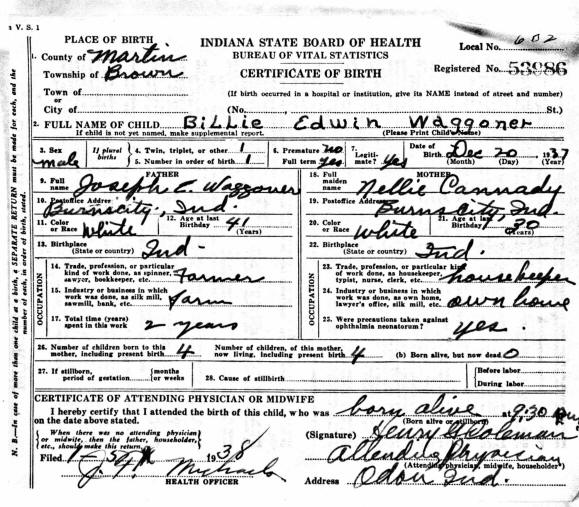 V. S. 1
PLACE OF BIRTH
INDIANA STATE BOARD OF HEALTH
BUREAU OF VITAL STATISTICS
CERTIFICATE OF BIRTH
Local No. 602
Registered No. 53986
1. County of Martin
Township of Brown
Town of
or
City of
(If birth occurred in a hospital or institution, give its NAME instead of street and number)
(No. St.)
2. FULL NAME OF CHILD Billie Edwin Waggoner
If child is not yet named, make supplemental report. (Please Print Child's Name)
3. Sex male
If plural births
4. Twin, triplet, or other 1
5. Number in order of birth 1
6. Premature no
Full term yes
7. Legitimate? yes
Date of Birth Dec 20, 1937
(Month) (Day) (Year)
FATHER
9. Full name Joseph C. Waggoner
10. Postoffice Address Burns City, Ind.
11. Color or Race White
12. Age at last Birthday 41 (Years)
13. Birthplace (State or country) Ind.
OCCUPATION
14. Trade, profession, or particular kind of work done, as spinner, sawyer, bookkeeper, etc. Farmer
15. Industry or business in which work was done, as silk mill, sawmill, bank, etc. Farm
17. Total time (years) spent in this work 2 years
MOTHER
18. Full maiden name Nellie Cannady
19. Postoffice Address Burns City, Ind.
20. Color or Race White
21. Age at last Birthday (Years)
22. Birthplace (State or country) Ind.
OCCUPATION
23. Trade, profession, or particular kind of work done, as housekeeper, typist, nurse, clerk, etc. housekeeper
24. Industry or business in which work was done, as own home, lawyer's office, silk mill, etc. own home
25. Were precautions taken against ophthalmia neonatorum? yes.
26. Number of children born to this mother, including present birth 4
Number of children, of this mother, now living, including present birth 4
(b) Born alive, but now dead 0
27. If stillborn, period of gestation months or weeks
28. Cause of stillbirth
Before labor
During labor
CERTIFICATE OF ATTENDING PHYSICIAN OR MIDWIFE
I hereby certify that I attended the birth of this child, who was born alive at 9:30
(Born alive or stillborn)
on the date above stated.
When there was no attending physician or midwife, then the father, householder, etc., should make this return.
(Signature) Henry Coleman
Attending Physician
(Attending physician, midwife, householder)
Filed 1938
Michaels
HEALTH OFFICER
Address Odon Ind.
N. B.—In case of more than one child at a birth, a SEPARATE RETURN must be made for each, and the number of each, in order of birth, stated.